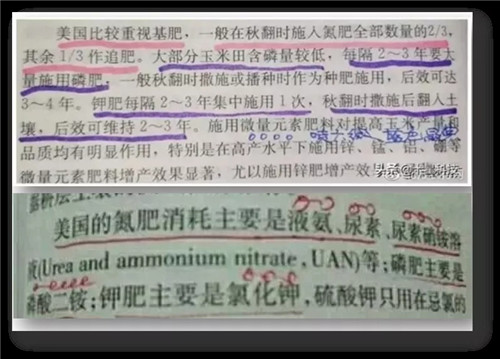 美国比较重视基肥，一般在秋翻时施入氮肥全部数量的2/3，
其余1/3作追肥。大部分玉米田含磷量较低，每隔2～3年要大
量施用磷肥，一般秋翻时撒施或播种时作为种肥施用，后效可达
3～4年。钾肥每隔2～3年集中施用1次，秋翻时撒施后翻入土
壤，后效可维持2～3年。施用微量元素肥料对提高玉米产量和
品质均有明显作用，特别是在高产水平下施用锌、锰、铝、硼等
微量元素肥料增产效果显著，尤以施用锌肥增产效
头条
美国的氮肥消耗主要是液氨、尿素、尿素硝铵溶
液(Urea and ammonium nitrate, UAN)等；磷肥主要是
磷酸二铵；钾肥主要是氯化钾，硫酸钾只用在忌氯的